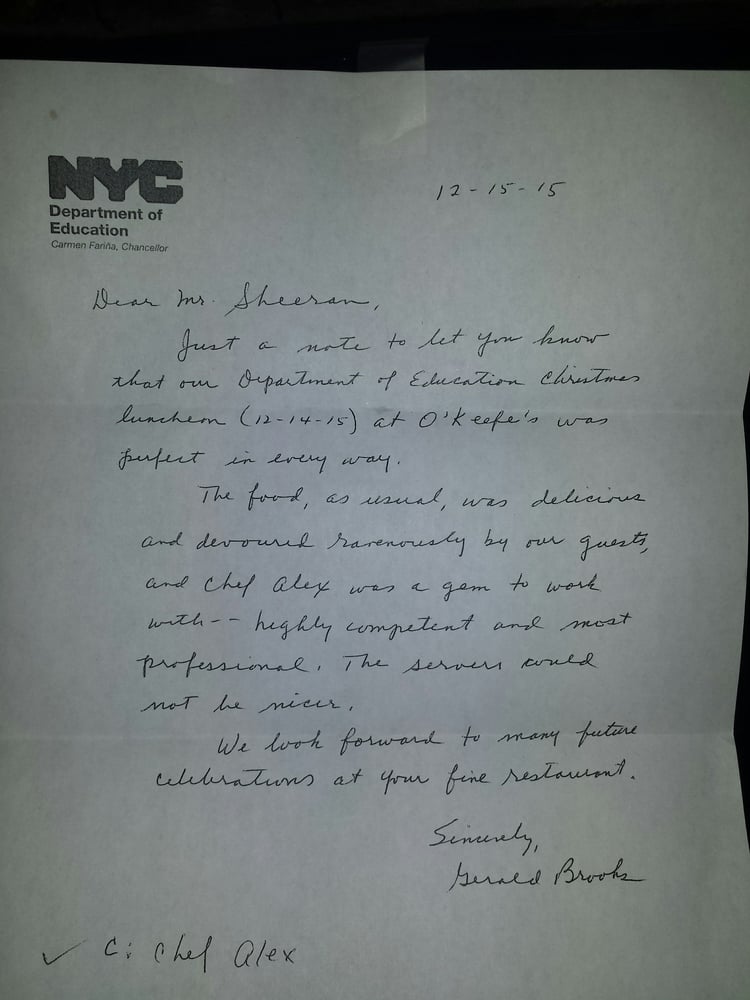 NYC
Department of
Education
Carmen Fariña, Chancellor
12-15-15
Dear Mr. Sheeran,
Just a note to let you know
that our Department of Education Christmas
luncheon (12-14-15) at O'Keefe's was
perfect in every way.
The food, as usual, was delicious
and devoured ravenously by our guests,
and Chef Alex was a gem to work
with-- highly competent and most
professional. The servers could
not be nicer.
We look forward to many future
celebrations at your fine restaurant.
Sincerely,
Gerald Brooks
✓ C: Chef Alex